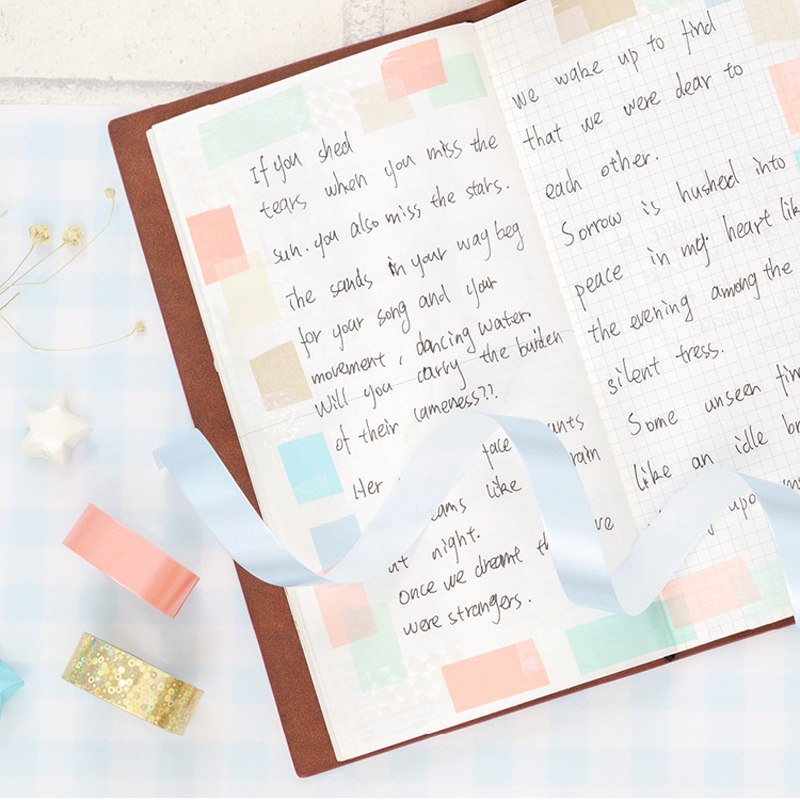 If you shed
tears when you miss the
sun. you also miss the stars.
The sands in your way beg
for your song and your
movement, dancing water.
Will you carry the burden
of their lameness??.
Her face
like
night.
once we dreamt
were strangers.
we wake up to find
that we were dear to
each other.
Sorrow is hushed into
peace in my heart
the evening among the
silent tress.
Some unseen
like an idle
upon